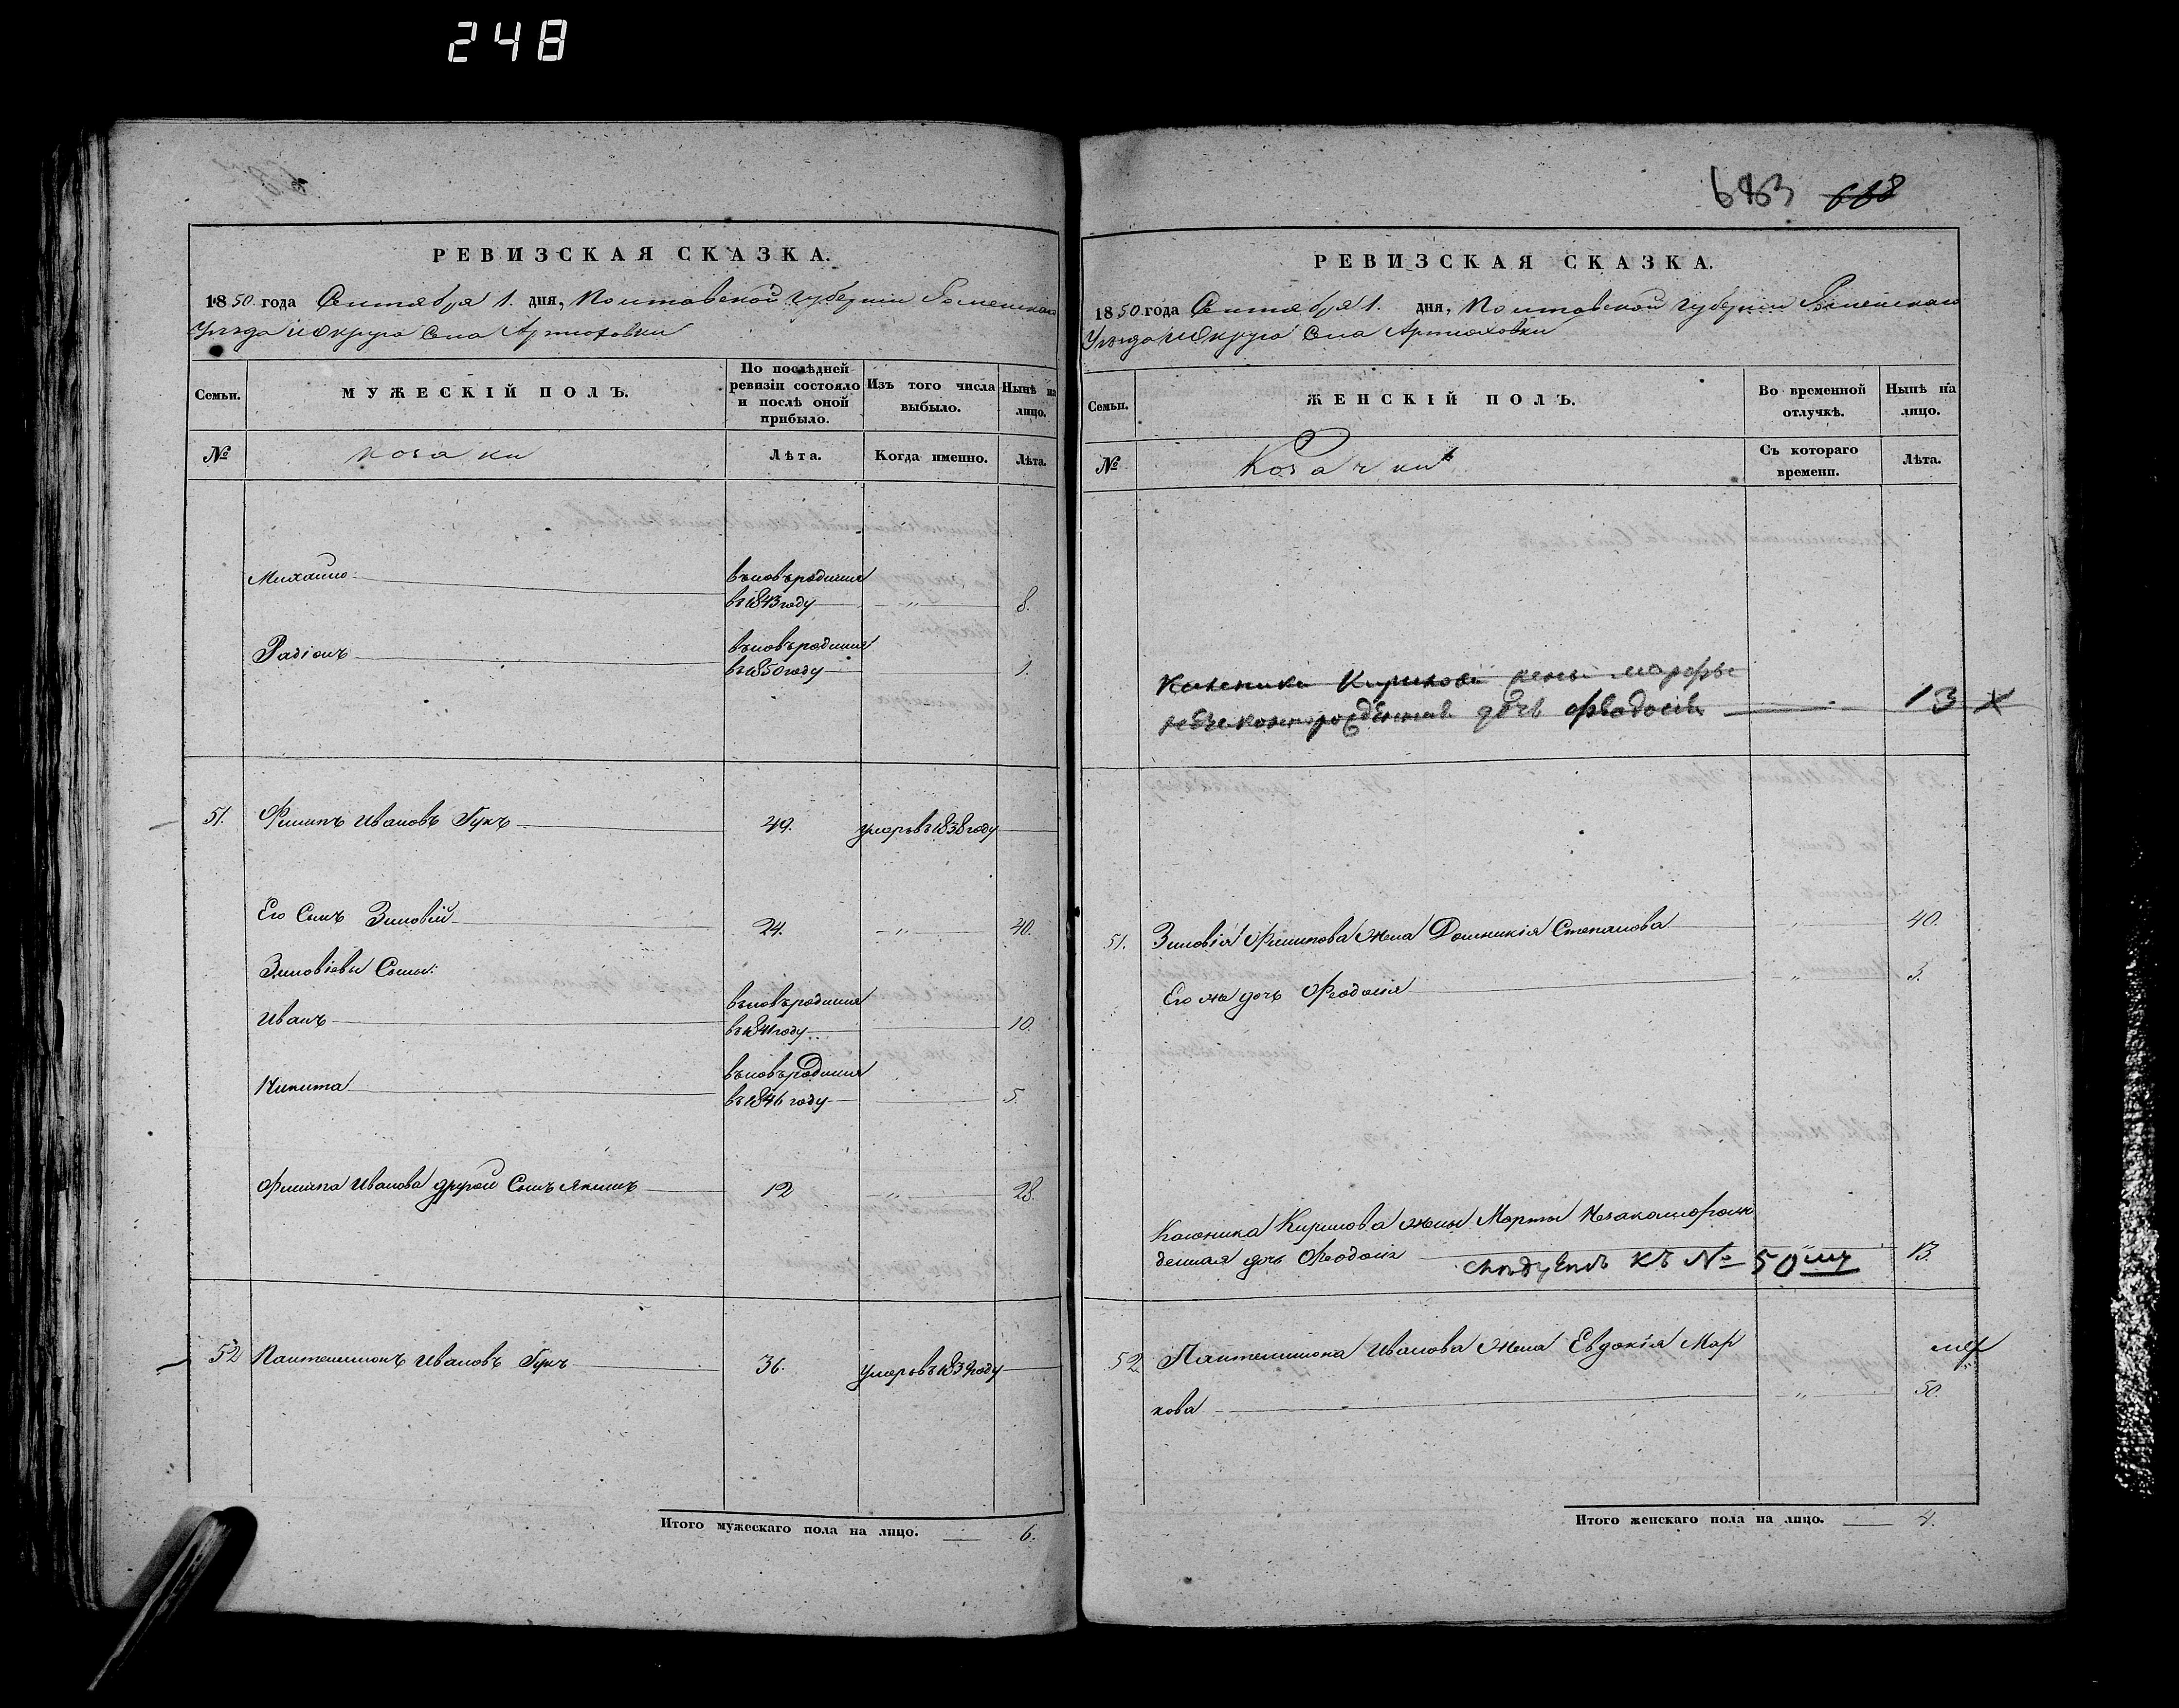 248
683 688
РЕВИЗСКАЯ СКАЗКА.
1850 года Сентября 1. дня, Полтавской губерніи Роменскаго
Уѣзда и Округа Села Артюховки
Семьи.
МУЖЕСКІЙ ПОЛЪ.
По послѣдней ревизіи состояло и послѣ оной прибыло.
Изъ того числа выбыло.
Нынѣ на лицо.
№
козаки
Лѣта.
Когда именно.
Лѣта.
Михайло вновьродился
въ 1843 году „ 8.
Радіонъ вновьродился
въ 1850 году 1.
51. Филипъ Ивановъ Гукъ 49. умеръ въ 1838 году
Его Сынъ Зиновій 24. „ 40.
Зиновіевы Сыны:
Иванъ вновьродился
въ 1841 году 10.
Никита вновьродился
въ 1846 году 5.
Филипа Иванова другой Сынъ Якимъ 12 „ 28.
52 Пантелеимонъ Ивановъ Гукъ 36. умеръ въ 1839 году
Итого мужескаго пола на лицо. 6.
РЕВИЗСКАЯ СКАЗКА.
1850 года Сентября 1. дня, Полтавской губерніи Роменскаго
Уѣзда и Округа Села Артюховки
Семьи.
ЖЕНСКІЙ ПОЛЪ.
Во временной отлучкѣ.
Нынѣ на лицо.
№
Козачки
Съ котораго времени.
Лѣта.
Каленика Кирилова жены Марфы
незаконорожденная дочь Феодосія 13 х
51. Зиновія Филипова жена Домникія Степанова „ 40.
Его же дочь Феодосія „ 3.
Каленика Кирилова жены Марфы Незаконорож
денная дочь Феодосія слѣдуетъ къ № 50му „ 13.
52 Пантелимона Иванова жена Евдокія Мар
кова „ 50.
Итого женскаго пола на лицо. 4.